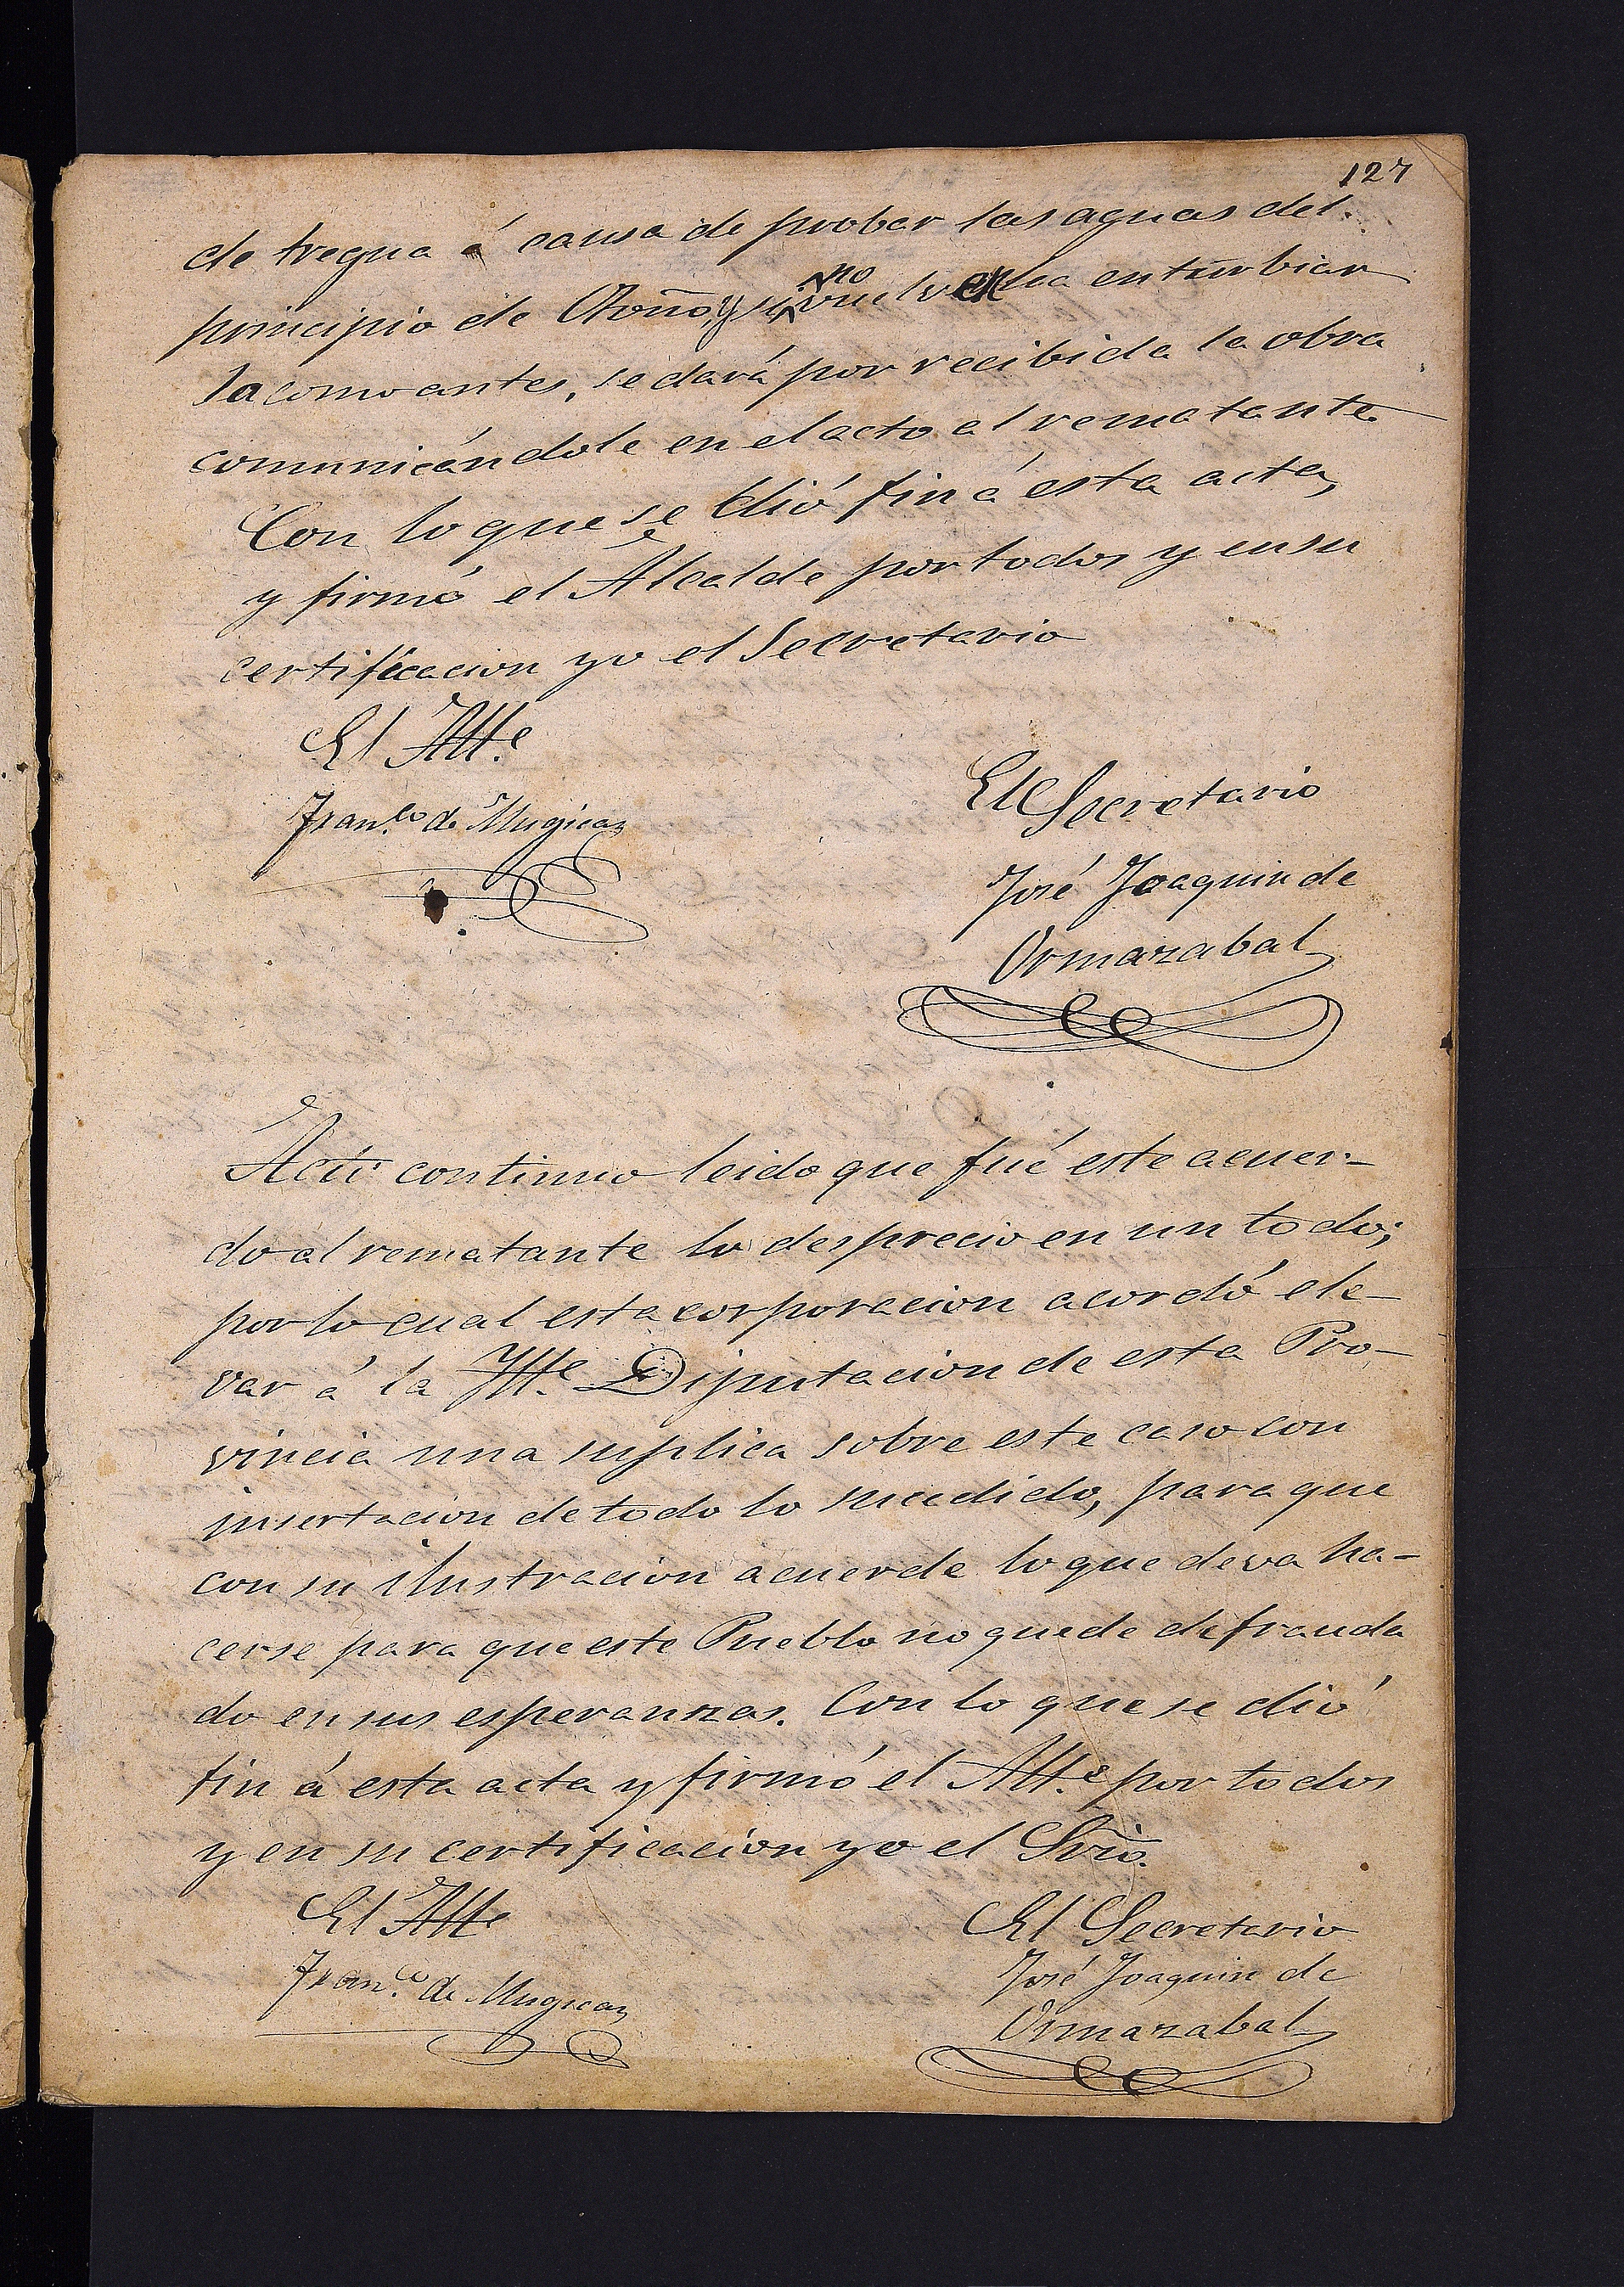 127
de tregua á causa de probar las aguas del
principio de Otoño, y si no vuelven a enturbiar
la como antes, se dará por recibida la obra
comunicándole en el acto al rematante
Con lo que se dió fin á esta acta,
y firmó el Alcalde por todos y en su
certificacion yo el Secretario
El Alle.
Franco. de Mugica
El Secretario
José Joaquin de
Ormazabal
Acto continuo leido que fué este acuer-
do al rematante lo desprecio en un todo;
por lo cual esta corporacion acordó ele-
var á la Ille. Diputacion de esta Pro-
vincia una suplica sobre este caso con
insertacion de todo lo sucedido, para que
con su ilustracion acuerde lo que deva ha-
cerse para que este Pueblo no quede defrauda
do en sus esperanzas. Con lo que se dió
fin á esta acta y firmó el Alle. por todos
y en su certificacion yo el Srio.
El Alle
Franco. de Mugica
El Secretario
José Joaquin de
Ormazabal